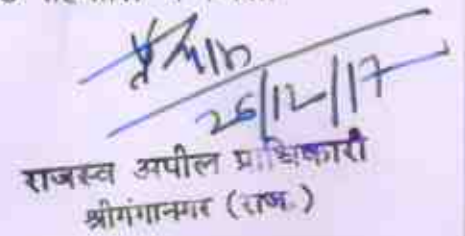 26/12/17
राजस्व अपील प्राधिकारी
श्रीगंगानगर (राज.)